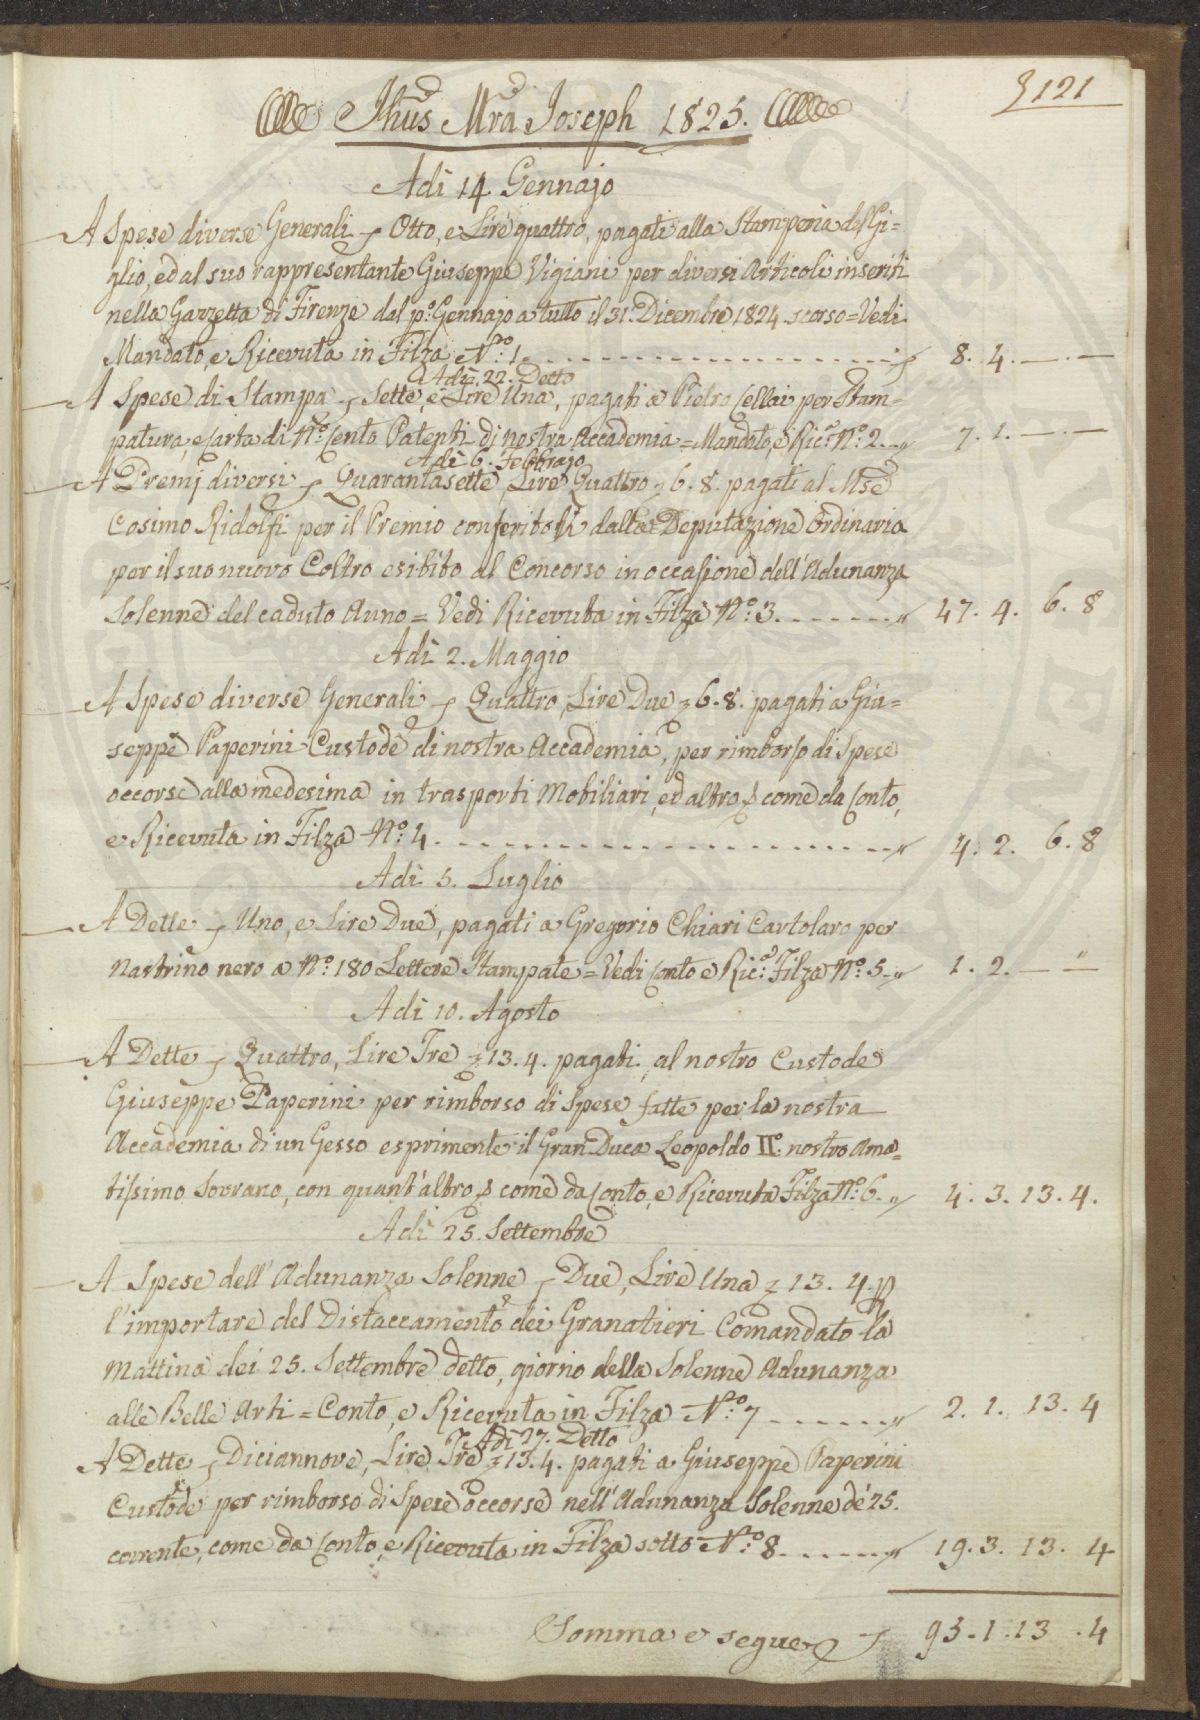 121
Jhus Mra Joseph 1825.
Adì 14 Gennajo
A Spese diverse Generali Otto, e Lire quattro, pagati alla Stamperia del Gi=
glio, ed al suo rappresentante Giuseppe Vigiani per diversi Articoli inseriti
nella Gazzetta di Firenze dal p.º Gennajo a tutto il 31. Dicembre 1824 scorso = Vedi
Mandato, e Ricevuta in Filza Nº: 1. 8. 4. — . —
Adì 22. Detto
A Spese di Stampa Sette, e Lire Una, pagati a Pietro Cellai per Stam=
patura, e Carta di Nº: Cento Patenti di nostra Accademia = Mandato, e Ric.ª Nº: 2. 7. 1. — . —
Adì 6. Febbrajo
A Premj diversi Quarantasette, Lire Quattro 6. 8. pagati al Mse
Cosimo Ridolfi per il Premio conferitoli dalla Deputazione Ordinaria
per il suo nuovo Coltro esibito al Concorso in occasione dell'Adunanza
Solenne del caduto Anno = Vedi Ricevuta in Filza Nº: 3. 47. 4. 6. 8
Adì 2. Maggio
A Spese diverse Generali Quattro, Lire Due 6. 8. pagati a Giu=
seppe Paperini Custode di nostra Accademia, per rimborso di Spese
occorse alla medesima in trasporti Mobiliari, ed altro, come da Conto,
e Ricevuta in Filza Nº: 4. 4. 2. 6. 8
Adì 5. Luglio
A Dette Uno, e Lire Due, pagati a Gregorio Chiari Cartolaro per
Nastrino nero a Nº: 180 Lettere Stampate = Vedi Conto e Ric.ª Filza Nº: 5. 1. 2. — "
Adì 10. Agosto
A Dette Quattro, Lire Tre 13. 4. pagati al nostro Custode
Giuseppe Paperini per rimborso di Spese fatte per la nostra
Accademia di un Gesso esprimente il Gran Duca Leopoldo IIº. nostro Ama=
tissimo Sovrano, con quant'altro, come da Conto, e Ricevuta Filza Nº: 6. 4. 3. 13. 4.
Adì 25. Settembre
A Spese dell'Adunanza Solenne Due, Lire Una 13. 4.
l'importare del Distaccamento dei Granatieri Comandato la
Mattina dei 25. Settembre detto, giorno della Solenne Adunanza
alle Belle Arti = Conto, e Ricevuta in Filza Nº: 7 2. 1. 13. 4
Adì 27. Detto
A Dette Diciannove, Lire Tre 13. 4. pagati a Giuseppe Paperini
Custode per rimborso di Spese occorse nell'Adunanza Solenne de' 25.
corrente, come da Conto, e Ricevuta in Filza sotto Nº: 8. 19. 3. 13. 4
Somma e segue 95. 1. 13. 4